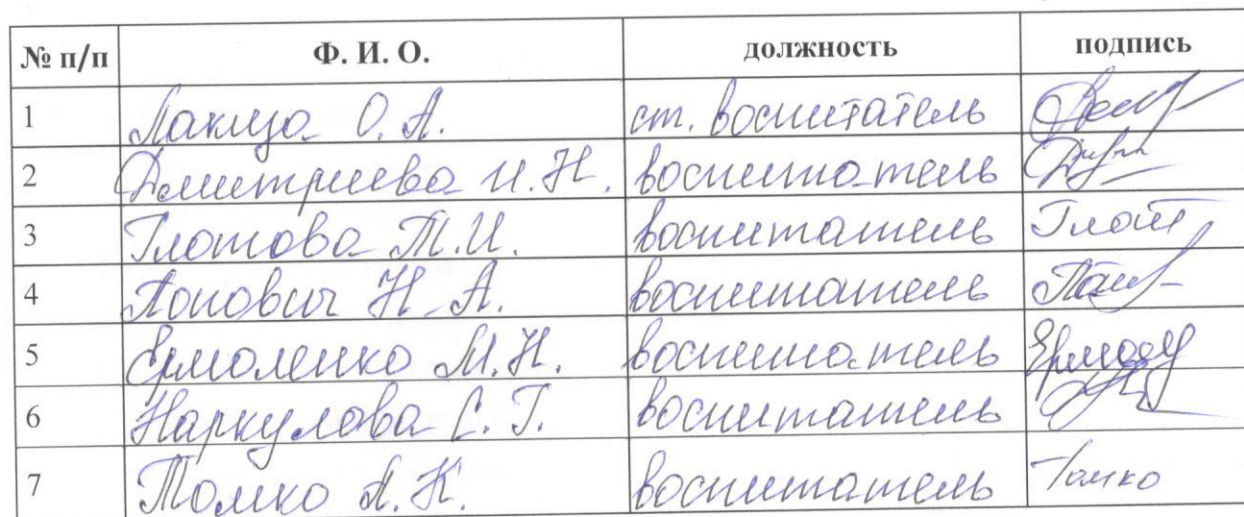 № п/п Ф. И. О. должность подпись
1 Лакиза О. А. ст. воспитатель
2 Дмитриева И. Н. воспитатель
3 Глотова Т. И. воспитатель Глот
4 Попович Н. А. воспитатель
5 Ермоленко М. Н. воспитатель
6 Наркулова С. Г. воспитатель
7 Томко А. К. воспитатель Томко